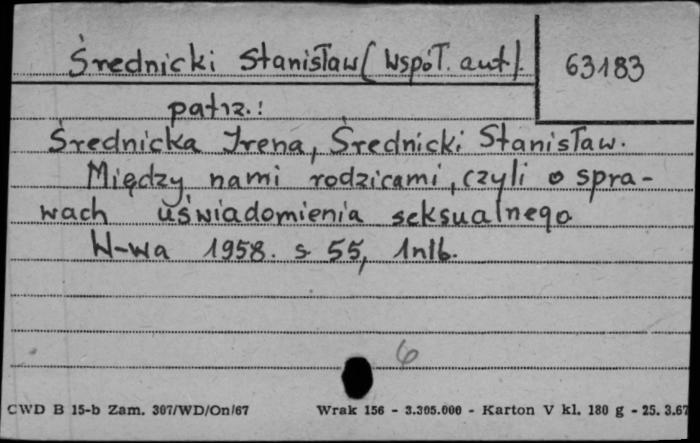 Średnicki Stanisław (współ. aut).
63183
patrz.:
Średnicka Irena, Średnicki Stanisław.
Między nami rodzicami, czyli o spra-
wach uświadomienia seksualnego
W-wa 1958. s 55, 1nlb.
6
CWD B 15-b Zam. 307/WD/On/67 Wrak 156 - 3.305.000 - Karton V kl. 180 g - 25. 3.67